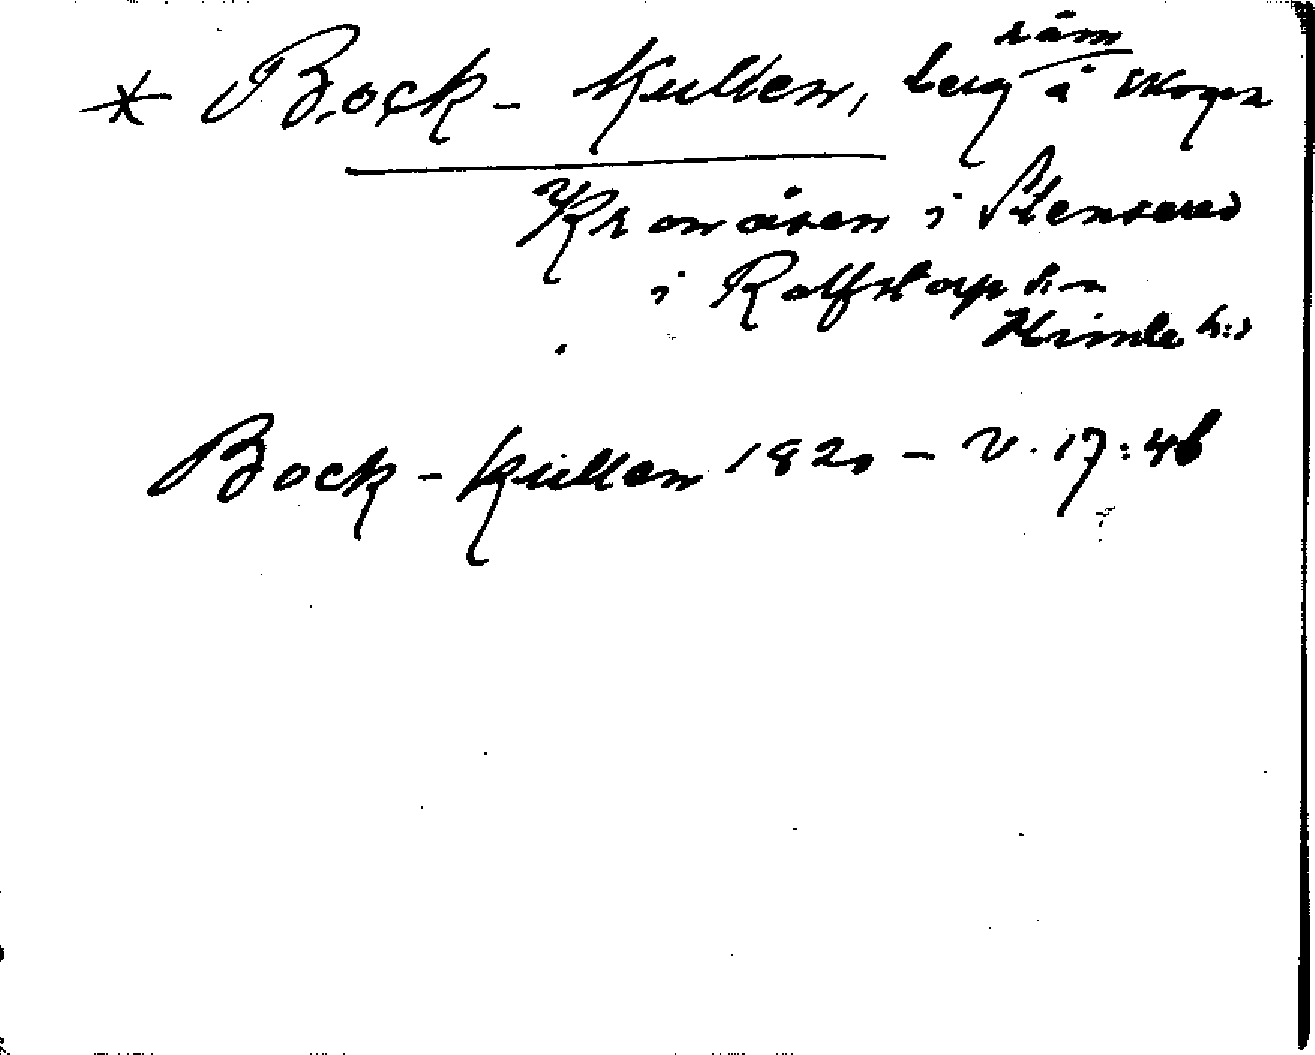 råm
* Bock-Kullen, berg å skogen
Kronåsen i Stensered
i Rolfstorp sn
Himle h:d
Bock-kullen 1820 - V. 17:46